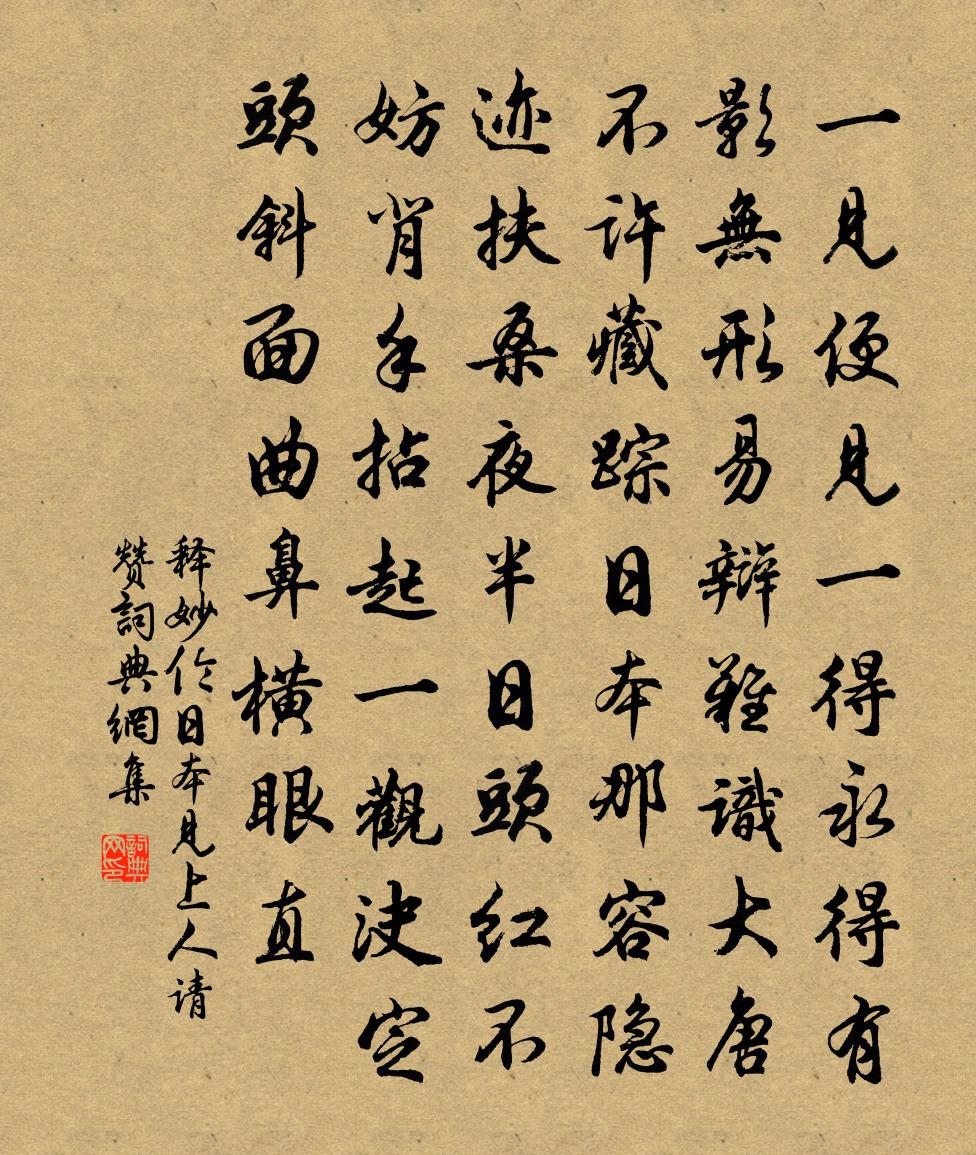 一見便見一得永得有
影無形易辯難識大唐
不许藏踪日本那容隐
迹扶桑夜半日頭红不
妨肖手拈起一觀決定
頭斜面曲鼻横眼直
释妙伦日本見上人请
赞詞典網集
詞典网印